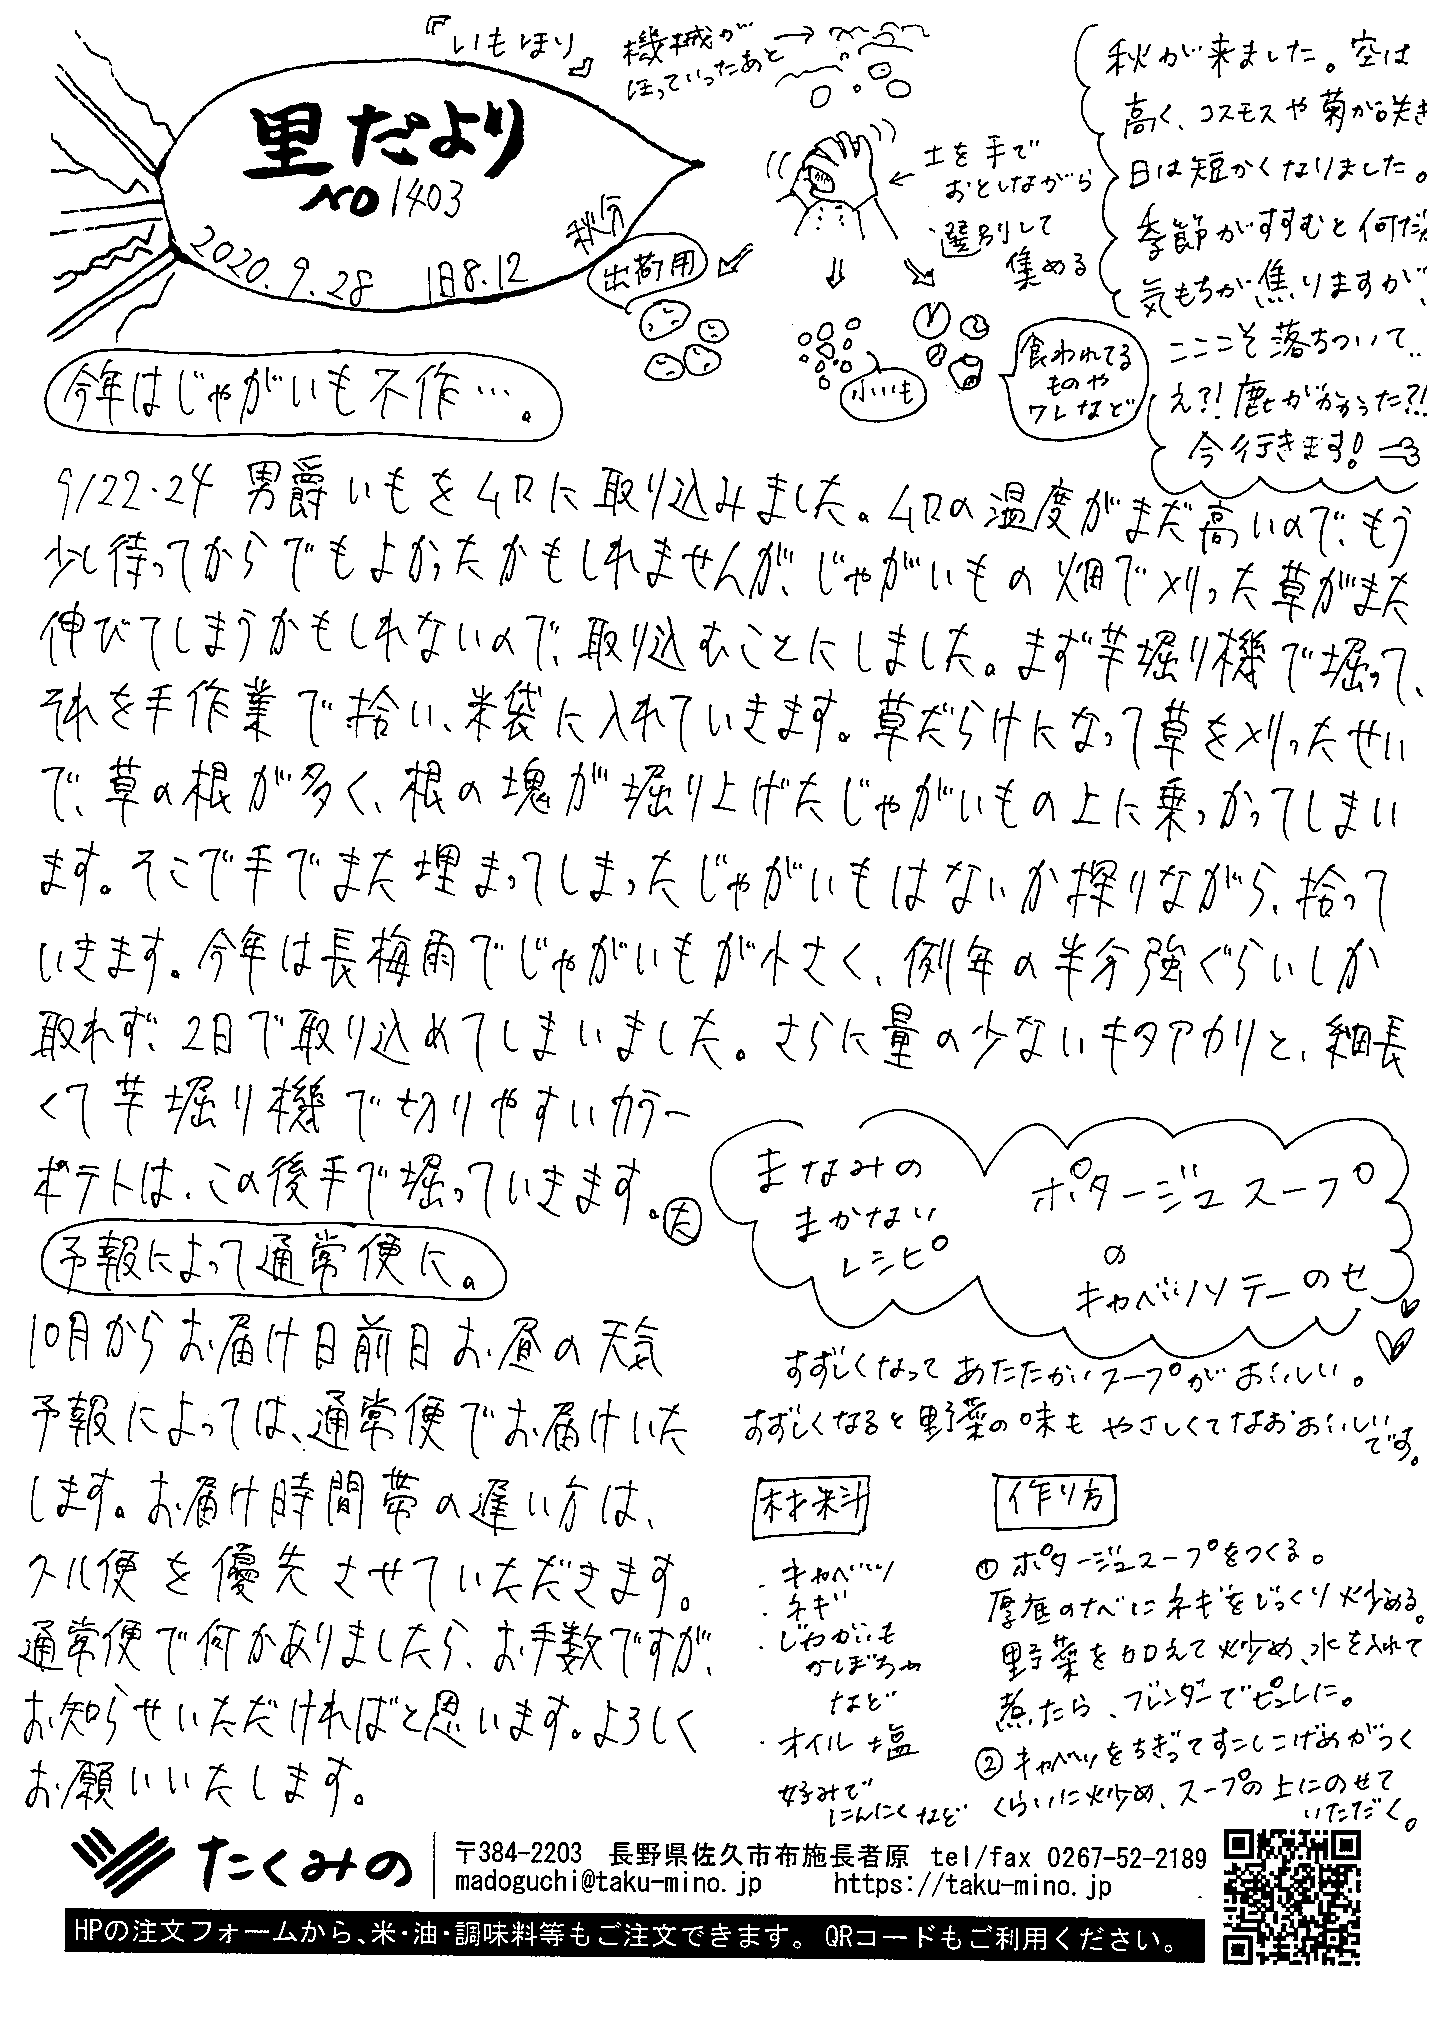 『いもほり』
里だより
NO 1403
2020.9.28 旧8.12 秋分
機械が
ほっていったあと→
土を手で
おとしながら
選別して
集める
出荷用
小いも
食われてる
ものや
ワレなど
秋が来ました。空は
高く、コスモスや菊が咲き
日は短かくなりました。
季節がすすむと何だか
気もちが焦りますが、
こここそ落ちついて..
え?! 鹿がかかった?!
今行きます!
今年はじゃがいも不作…。
9/22・24 男爵いもをムロに取り込みました。ムロの温度がまだ高いので、もう
少し待ってからでもよかったかもしれませんが、じゃがいもの畑で刈った草がまた
伸びてしまうかもしれないので、取り込むことにしました。まず芋堀り機で堀って、
それを手作業で拾い、米袋に入れていきます。草だらけになって草を刈ったせい
で、草の根が多く、根の塊が堀り上げたじゃがいもの上に乗っかってしまい
ます。そこで手でまた埋まってしまったじゃがいもはないか探りながら、拾って
いきます。今年は長梅雨でじゃがいもが小さく、例年の半分強ぐらいしか
取れず、2日で取り込めてしまいました。さらに量の少ないキタアカリと、細長
くて芋堀り機で切りやすいカラー
ポテトは、この後手で堀っていきます。
予報によって通常便に。
10月からお届け日前日お昼の天気
予報によっては、通常便でお届けいた
します。お届け時間帯の遅い方は、
クール便を優先させていただきます。
通常便で何かありましたら、お手数ですが、
お知らせいただければと思います。よろしく
お願いいたします。
まなみの
まかない
レシピ
ポタージュスープ
の
キャベツソテーのせ
すずしくなってあたたかいスープがおいしい。
すずしくなると野菜の味もやさしくてなおおいしい
です。
材料
・キャベツ
・ネギ
・じゃがいも
かぼちゃ
など
・オイル 塩
好みで
にんにくなど
作り方
① ポタージュスープをつくる。
厚底のナベにネギをじっくり炒める。
野菜を加えて炒め、水を入れて
煮たら、ブレンダーでピュレに。
② キャベツをちぎってすこしこげめがつく
くらいに炒め、スープの上にのせて
いただく。
たくみの
〒384-2203 長野県佐久市布施長者原 tel/fax 0267-52-2189
madoguchi@taku-mino.jp https://taku-mino.jp
HPの注文フォームから、米・油・調味料等もご注文できます。 QRコードもご利用ください。